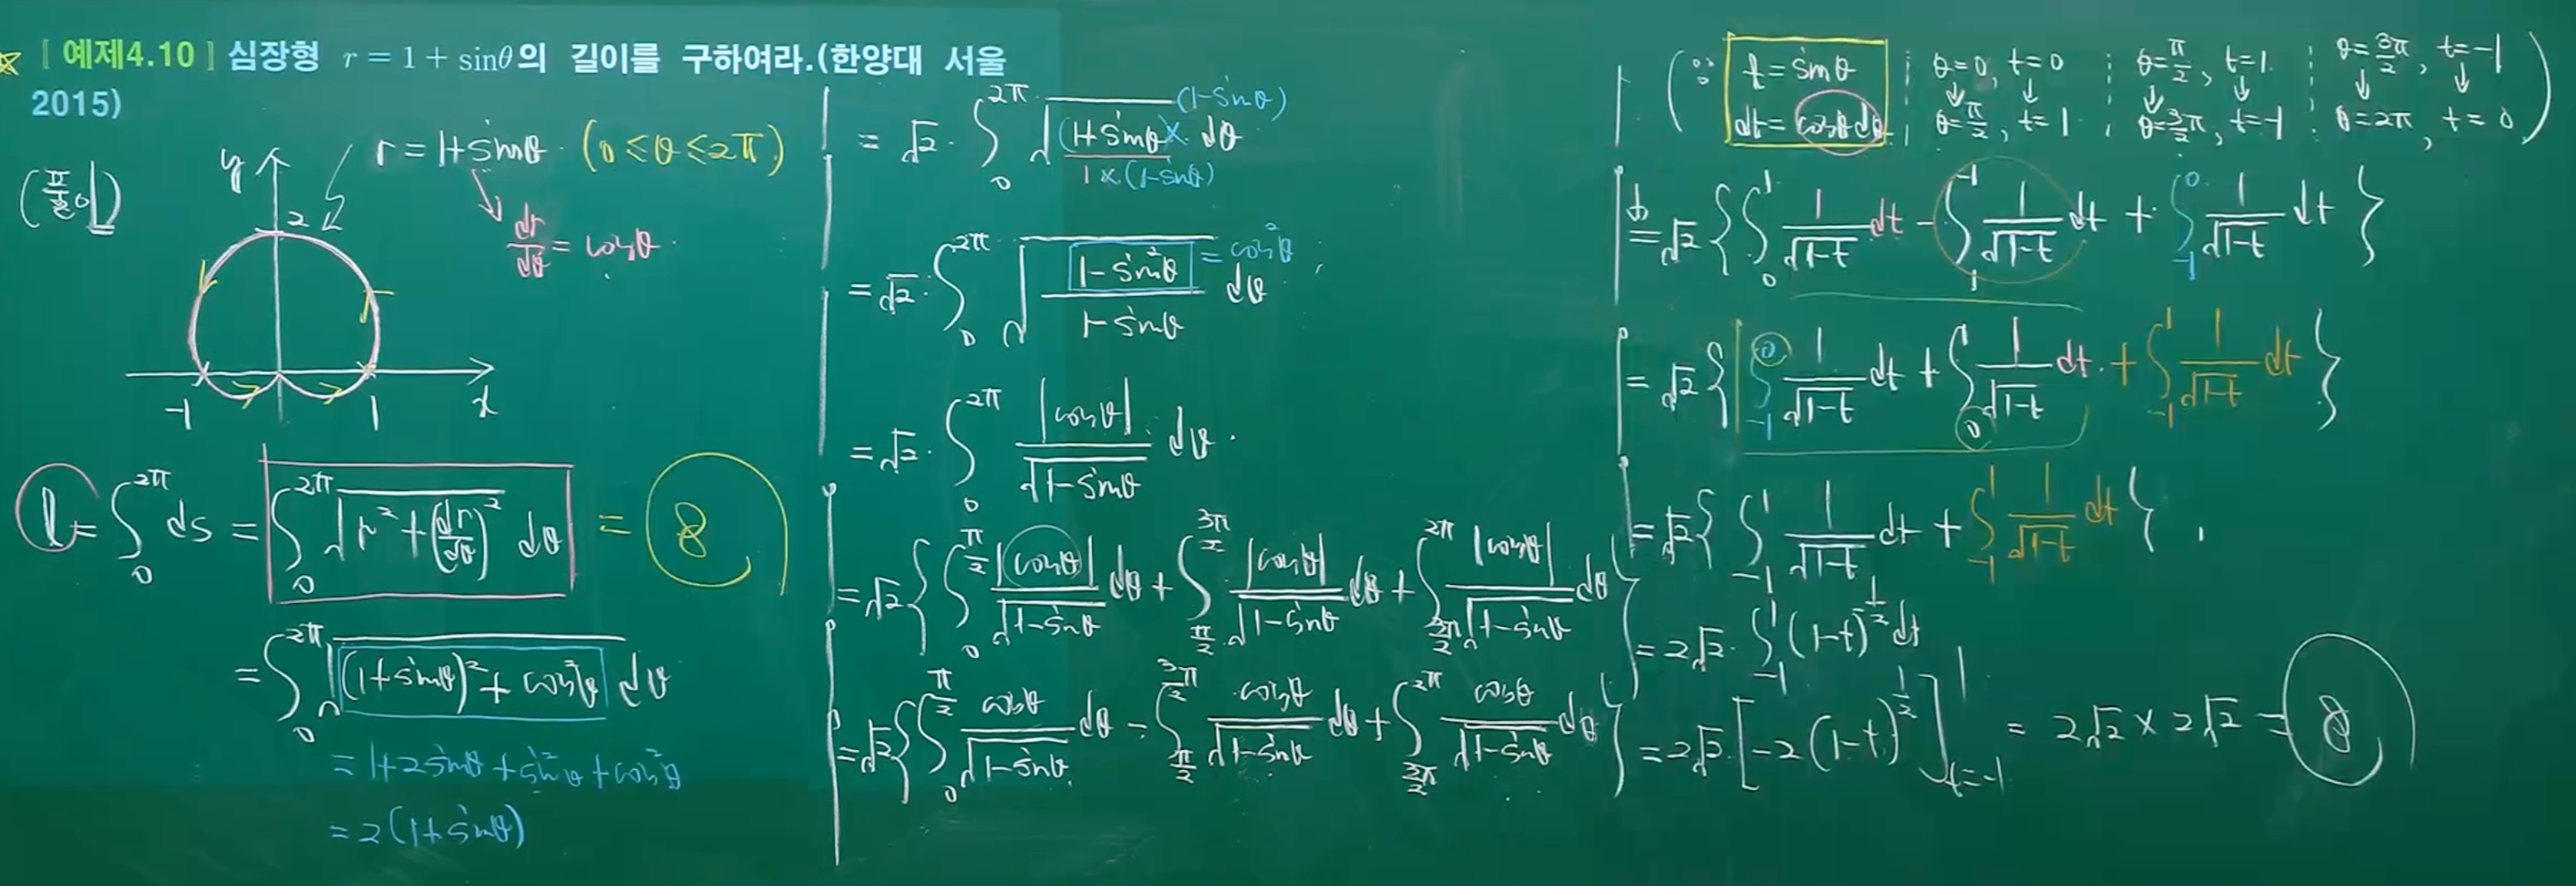 [ 예제4.10 ] 심장형 r = 1 + sinθ의 길이를 구하여라.(한양대 서울
2015)
r = 1+sinθ (0 ≤ θ ≤ 2π)
dr/dθ = cosθ
y
2
-1 1 x
l = ∫₀^{2π} ds = ∫₀^{2π} √(r² + (dr/dθ)²) dθ = 8
= ∫₀^{2π} √((1+sinθ)² + cos²θ) dθ
= 1+2sinθ + sin²θ + cos²θ
= 2(1+sinθ)
= √2 · ∫₀^{2π} √((1+sinθ)×(1-sinθ) / 1×(1-sinθ)) dθ
= √2 · ∫₀^{2π} √((1-sin²θ) / (1-sinθ)) dθ
= cos²θ
= √2 · ∫₀^{2π} |cosθ|/√(1-sinθ) dθ
= √2 { ∫₀^{π/2} |cosθ|/√(1-sinθ) dθ + ∫_{π/2}^{3π/2} |cosθ|/√(1-sinθ) dθ + ∫_{3π/2}^{2π} |cosθ|/√(1-sinθ) dθ }
= √2 { ∫₀^{π/2} cosθ/√(1-sinθ) dθ - ∫_{π/2}^{3π/2} cosθ/√(1-sinθ) dθ + ∫_{3π/2}^{2π} cosθ/√(1-sinθ) dθ }
( ∵ t = sinθ θ=0, t=0 θ=π/2, t=1 θ=3π/2, t=-1
dt = cosθdθ θ=π/2, t=1 θ=3/2π, t=-1 θ=2π, t=0 )
= √2 { ∫₀^1 1/√(1-t) dt - ∫_1^{-1} 1/√(1-t) dt + ∫_{-1}^0 1/√(1-t) dt }
= √2 { ∫_{-1}^0 1/√(1-t) dt + ∫_0^1 1/√(1-t) dt + ∫_{-1}^1 1/√(1-t) dt }
= √2 { ∫_{-1}^1 1/√(1-t) dt + ∫_{-1}^1 1/√(1-t) dt }
= 2√2 · ∫_{-1}^1 (1-t)^{-1/2} dt
= 2√2 [ -2(1-t)^{1/2} ]_{t=-1}^1 = 2√2 × 2√2 = 8